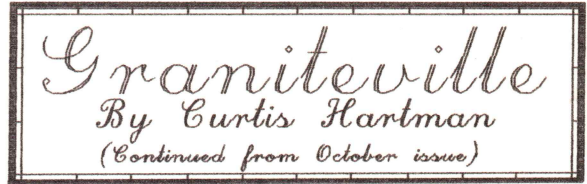 Graniteville
By Curtis Hartman
(Continued from October issue)